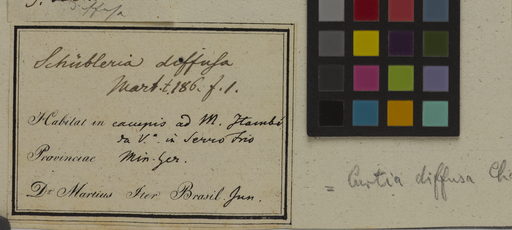 diffusa
Schübleria diffusa
Mart. t. 186. f. 1.
Habitat in campis ad M. Itambé
da V.ª in Serro frio
Provinciae Min. Ger.
Dr. Martius Iter Brasil. Jun.
= Curtia diffusa Cha